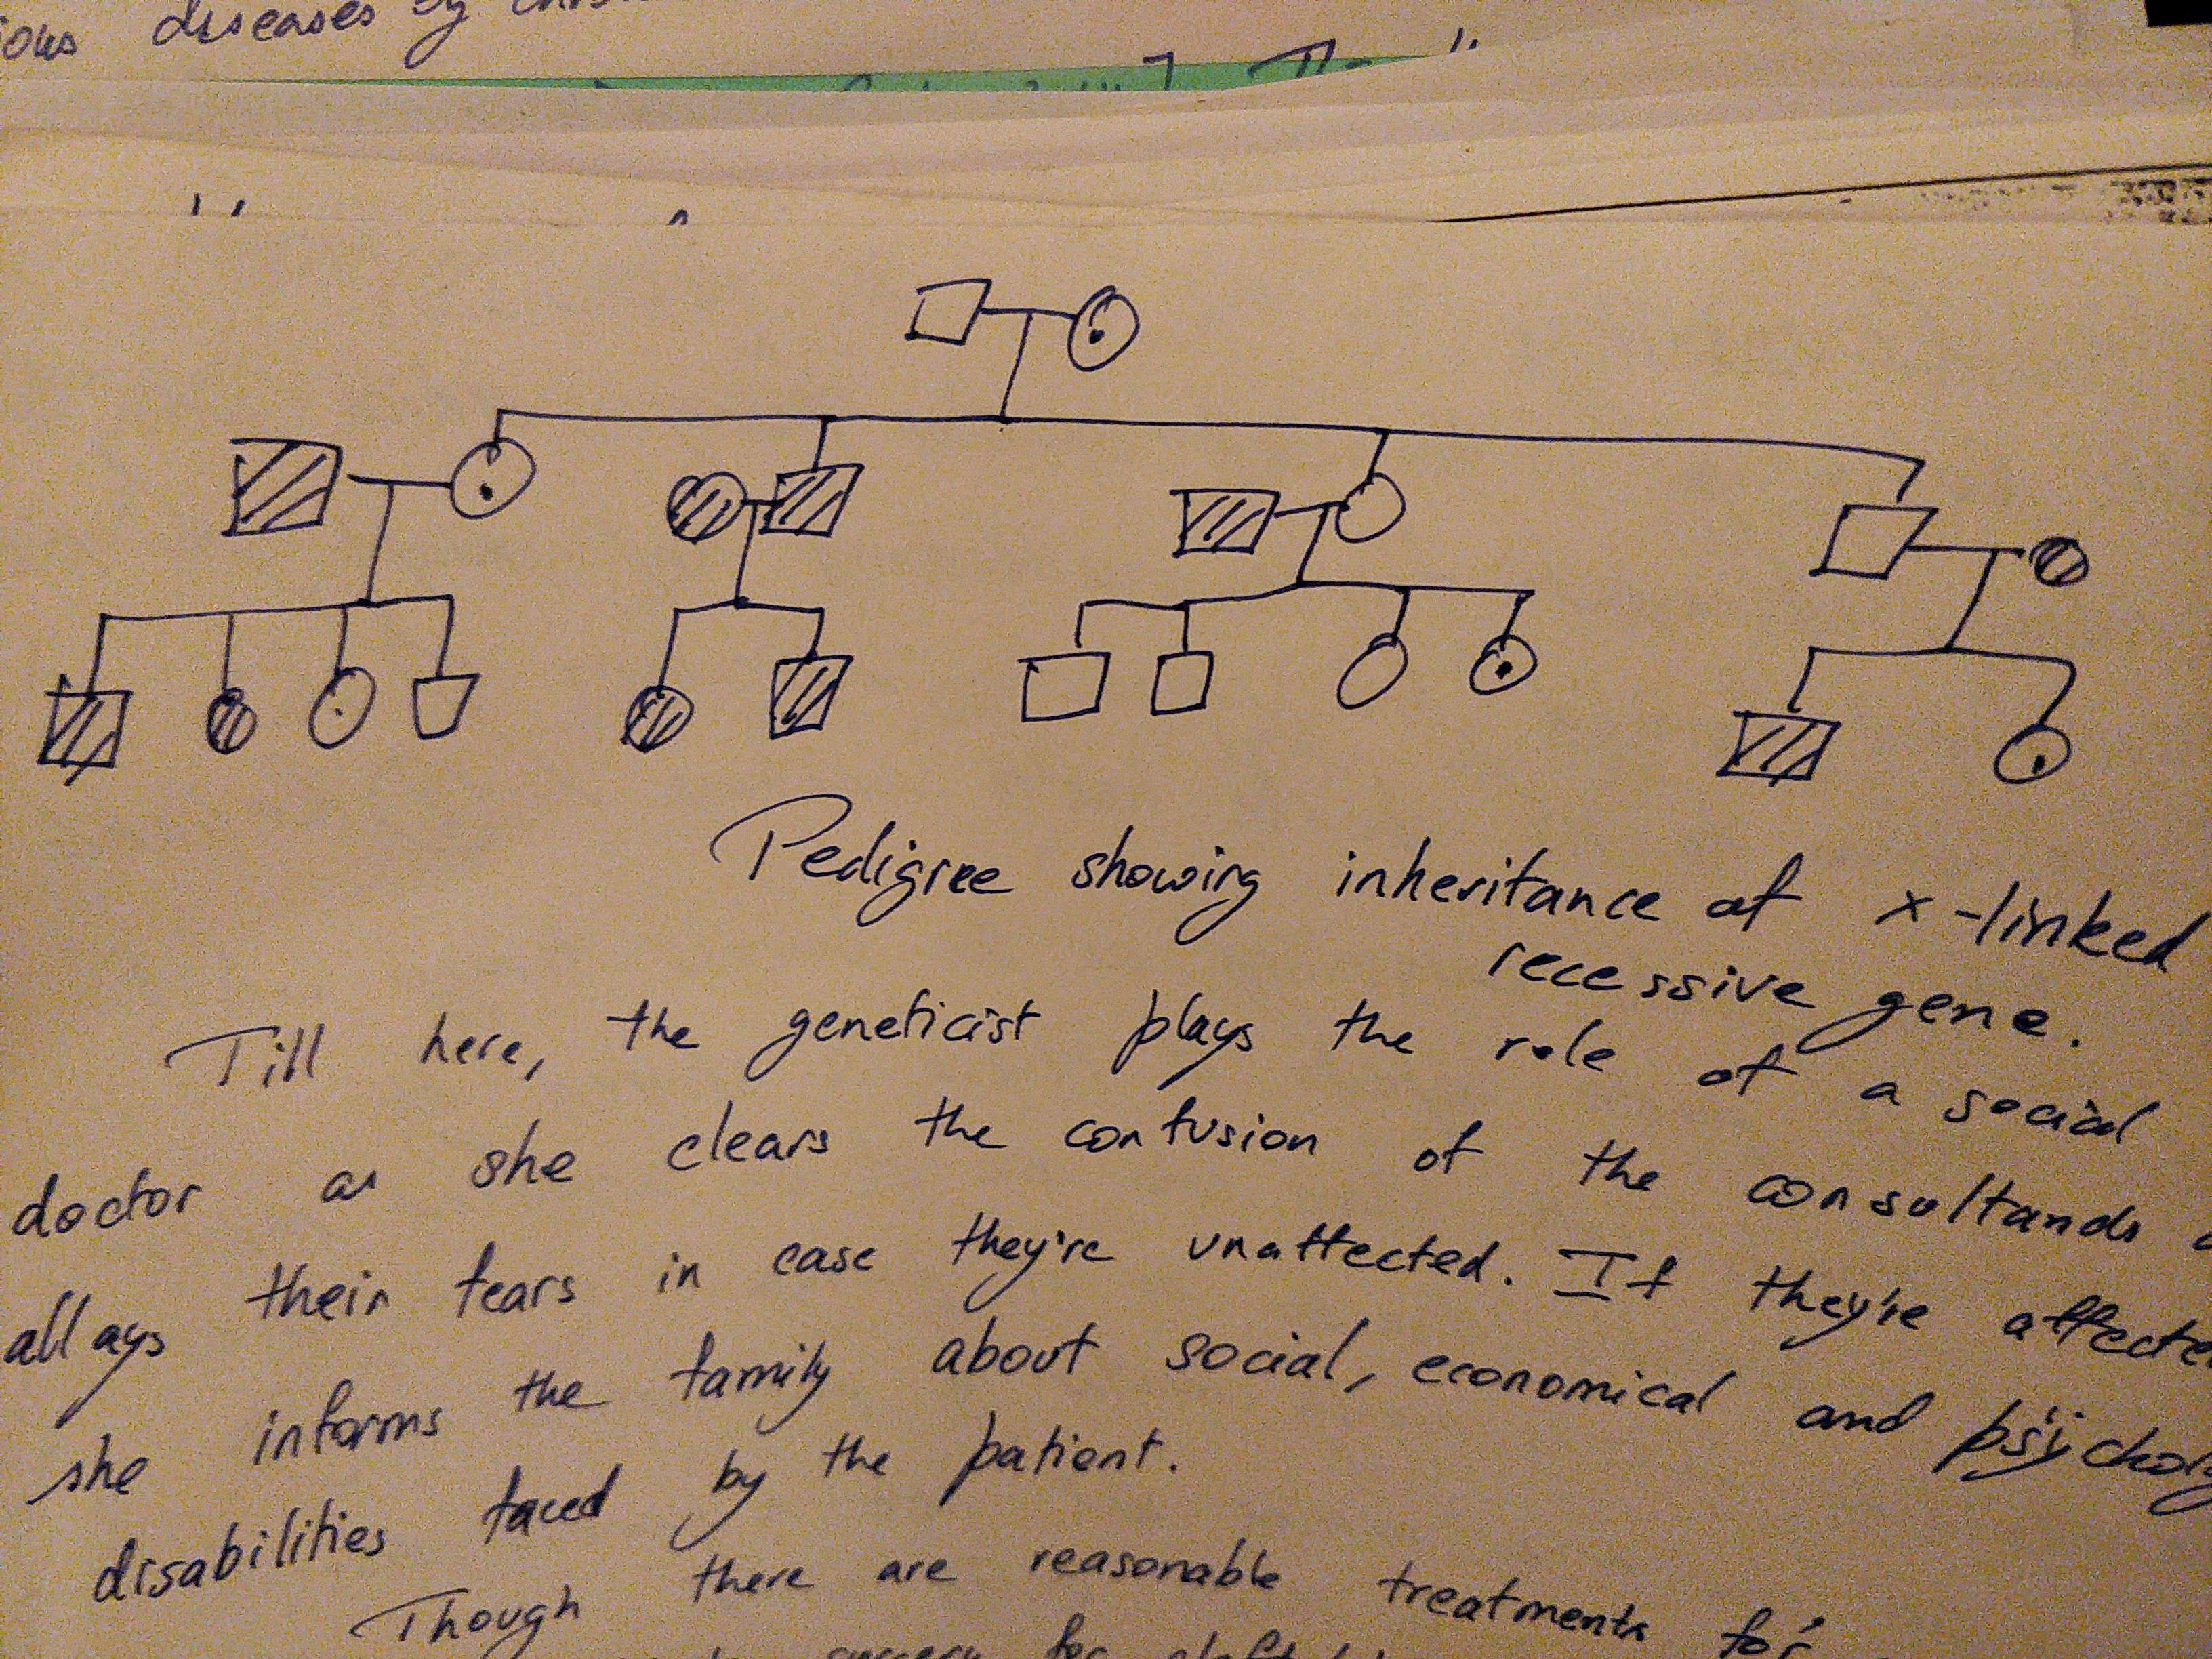 ious diseases by
Pedigree showing inheritance of x-linked
recessive gene.
Till here, the geneticist plays the role of a social
doctor as she clears the confusion of the consultands
allays their fears in case they're unaffected. If they're affecte
she informs the family about social, economical and psycholg
disabilities faced by the patient.
Though there are reasonable treatments for
surgery for cleft